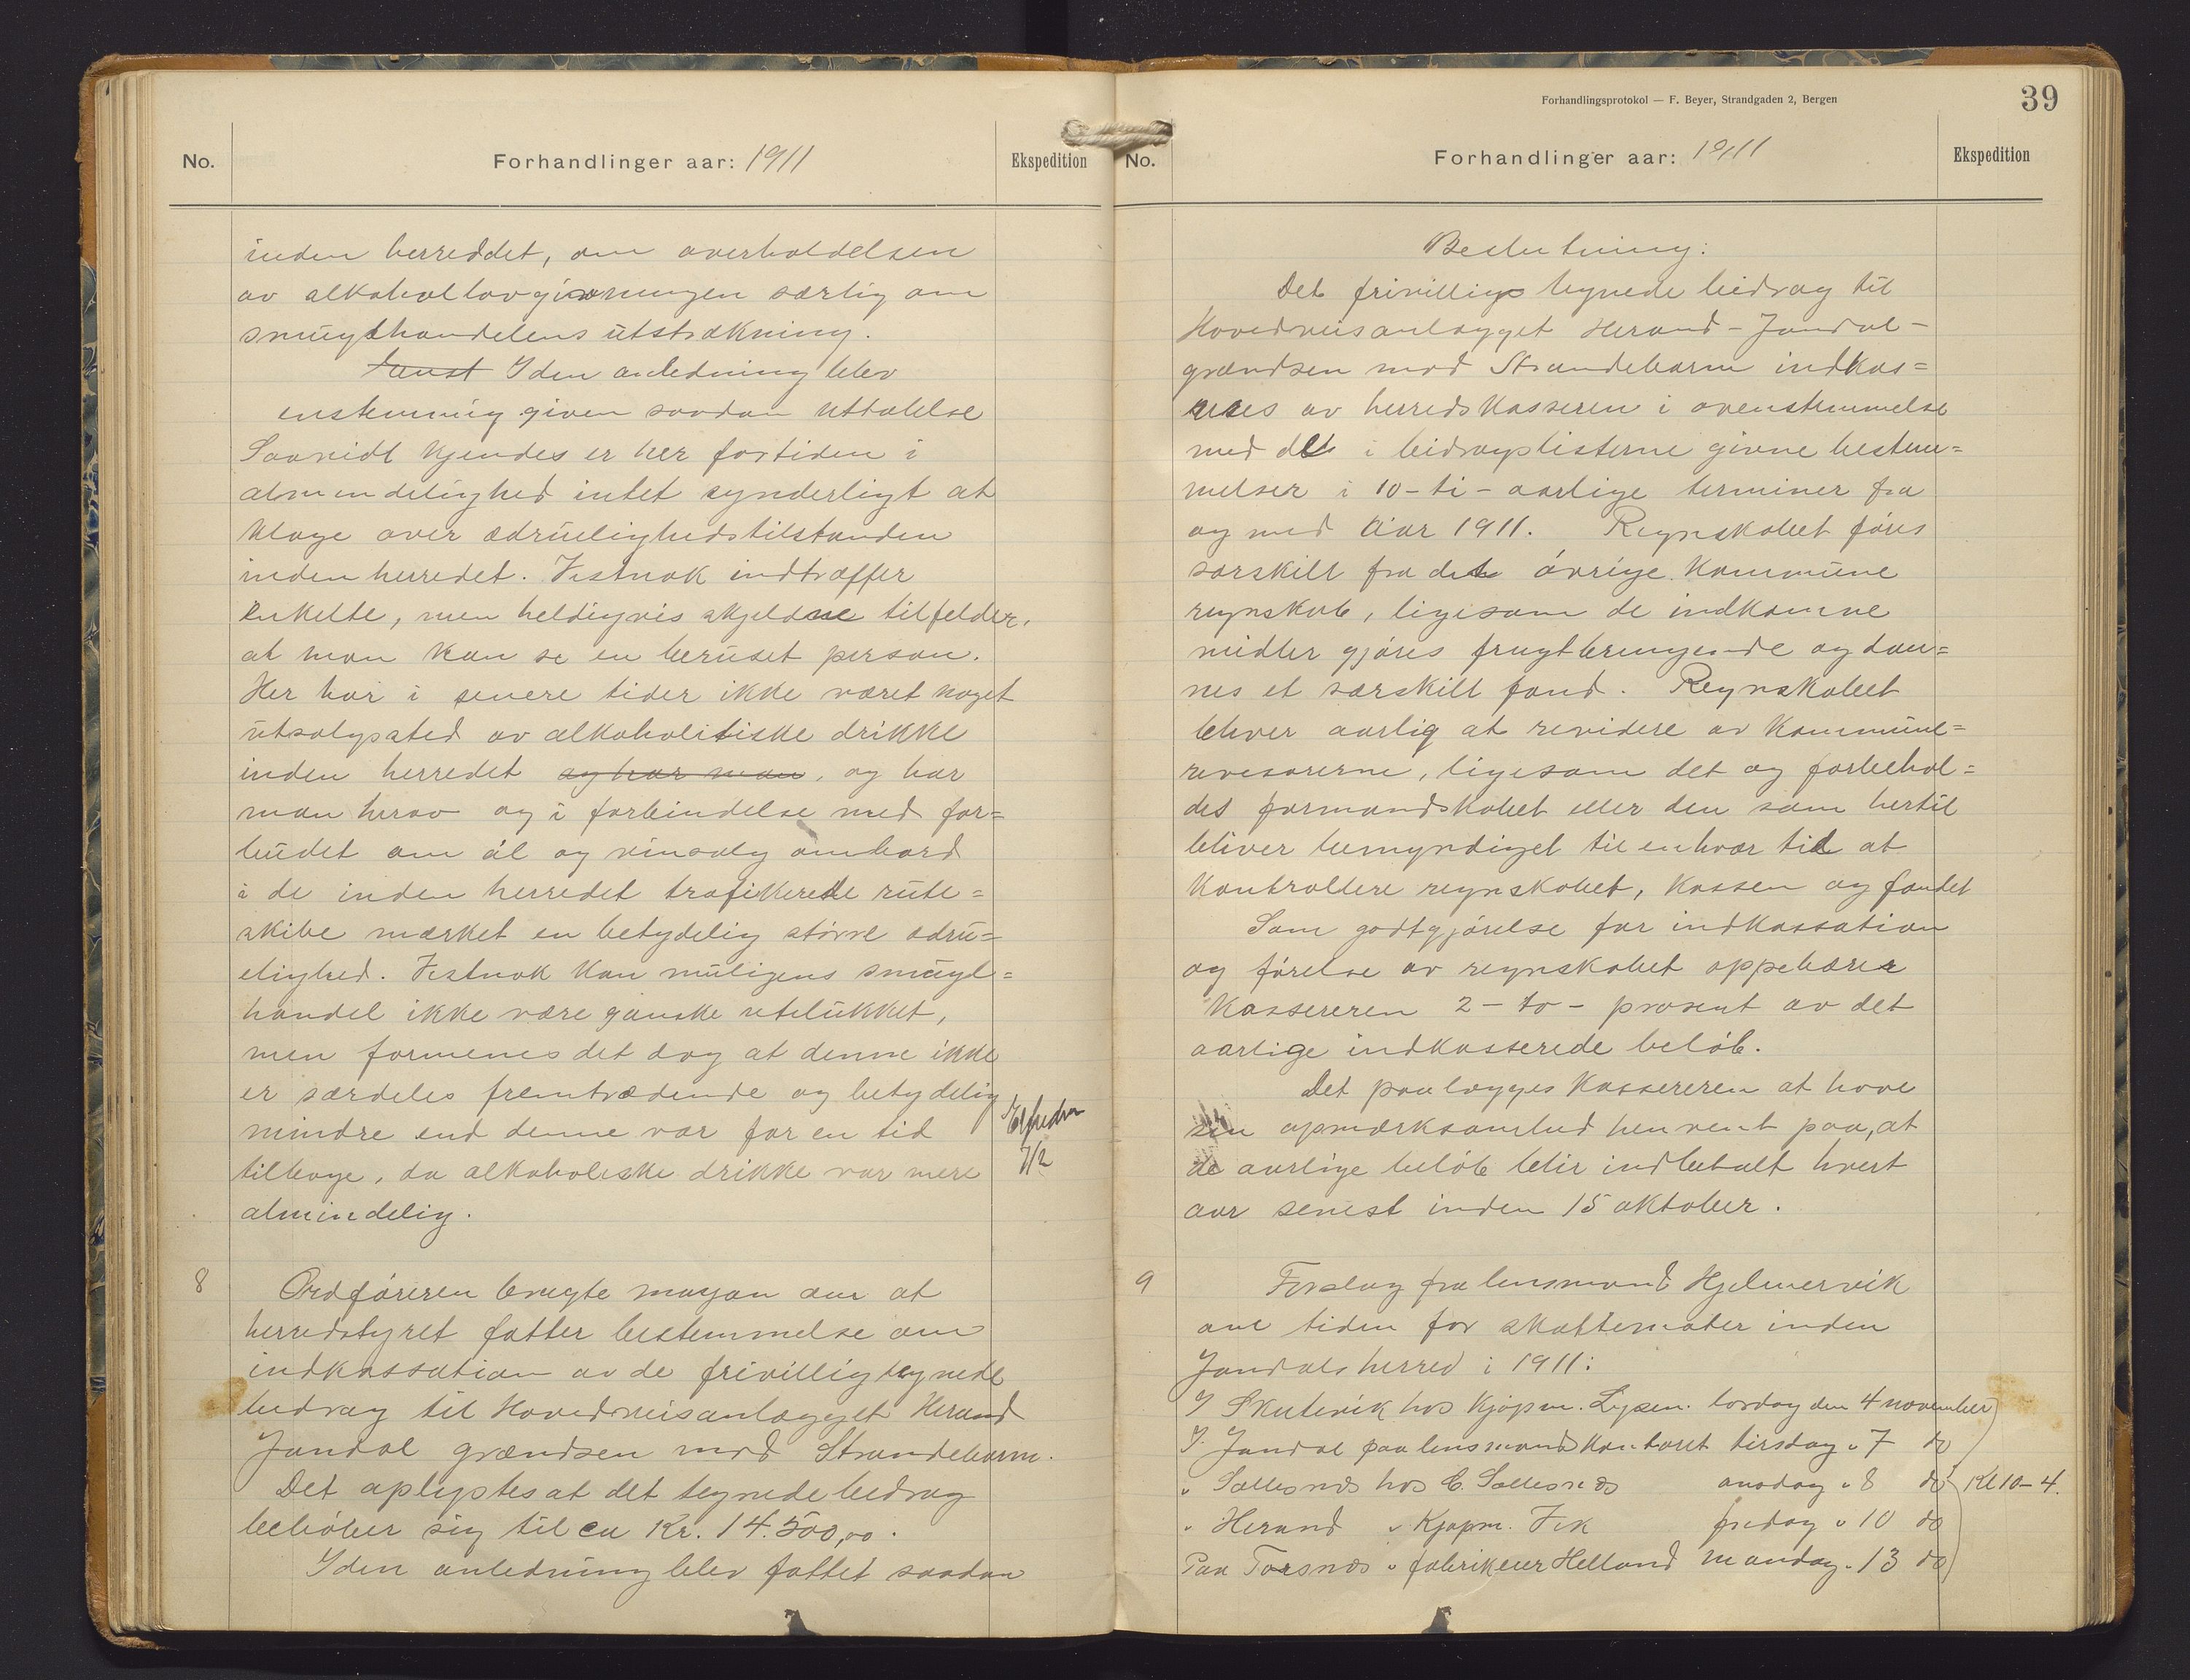 No.
Forhandlinger aar: 1911
Ekspedition
inden herreddet, om overholdelsen
av alkohollovgivningen særlig om
smughandelens utstrækning.
I den anledning blev
enstemmig given saadan uttalelse
Saavidt kjendes er her fortiden i
almindelighed intet synderligt at
klage over ædruelighedstilstanden
inden herredet. Vistnok indtræffer
enkelte, men heldigvis skjeldne tilfelder,
at man kan se en beruset person.
Her har i senere tider ikke været noget
utsalgssted av alkoholitiske drikke
inden herredet og har man, og har
man herav og i forbindelse med for=
budet om øl og vinsalg ombord
i de inden herredet trafikerede rute=
skibe mærket en betydelig större ædru=
elighed. Vistnok kan muligens smugl=
handel ikke være ganske utelukket,
men formenes det dog at denne ikke
er særdeles fremtrædende og betydelig
mindre end denne var for en tid
tilbage, da alkoholiske drikke var mere
almindelig.
7/2
8
Ordföreren bragte insjon om at
herredstyret fatter bestemmelse om
indkassation av de frivillig tegnede
bidrag til Hovedveisanlægget Herand
Jondal grændsen mod Strandebarm.
Det oplystes at det tegnede bidrag
belöber sig til ca Kr. 14.500,00.
I den anledning blev fattet saadan
Forhandlingsprotokol — F. Beyer, Strandgaden 2, Bergen
39
No.
Forhandlinger aar: 1911
Ekspedition
Beslutning:
Det frivillige tegnede bidrag til
Hovedveisanlægget Herand-Jondal-
grændsen mod Strandebarm indkas=
seres av herredskasseren i overenstemmelse
med de i bidragslisterne givne bestem=
melser i 10-ti-aarlige terminer fra
og med aar 1911. Regnskabet föres
særskilt fra det övrige Kommune
regnskab, ligesom de indkomne
midler gjöres frugtbringende og dan=
nes et særskilt fond. Regnskabet
bliver aarlig at revidere av Kommune=
revisorerne, ligesom det og forbehol=
des formandskabet eller den som hertil
bliver bemyndiget til enhver tid at
kontrollere regnskabet, kassen og fondet
Som godtgjörelse for indkassation
og förelse av regnskabet oppebærer
Kassereren 2-to- prosent av det
aarlige indkasserede belöb.
Det paalægges Kassereren at have
sin opmærksomhed henvent paa, at
de aarlige belöb blir indbetalt hvert
aar senest inden 15 oktober.
9
Forslag fra lensmand Hjelmervik
om tiden for skattemöter inden
Jondals herred i 1911:
I Skutevik hos Kjøpm. Lysen. lørdag den 4 november
I Jondal paa lensmandskontoret tirsdag " 7 do
" Sollesnæs hos C. Sollesnæs onsdag " 8 do Kl 10-4.
" Herand " Kjøpm. Vik fredag " 10 do
Paa Torsnæs " fabrikeier Helland mandag " 13 do